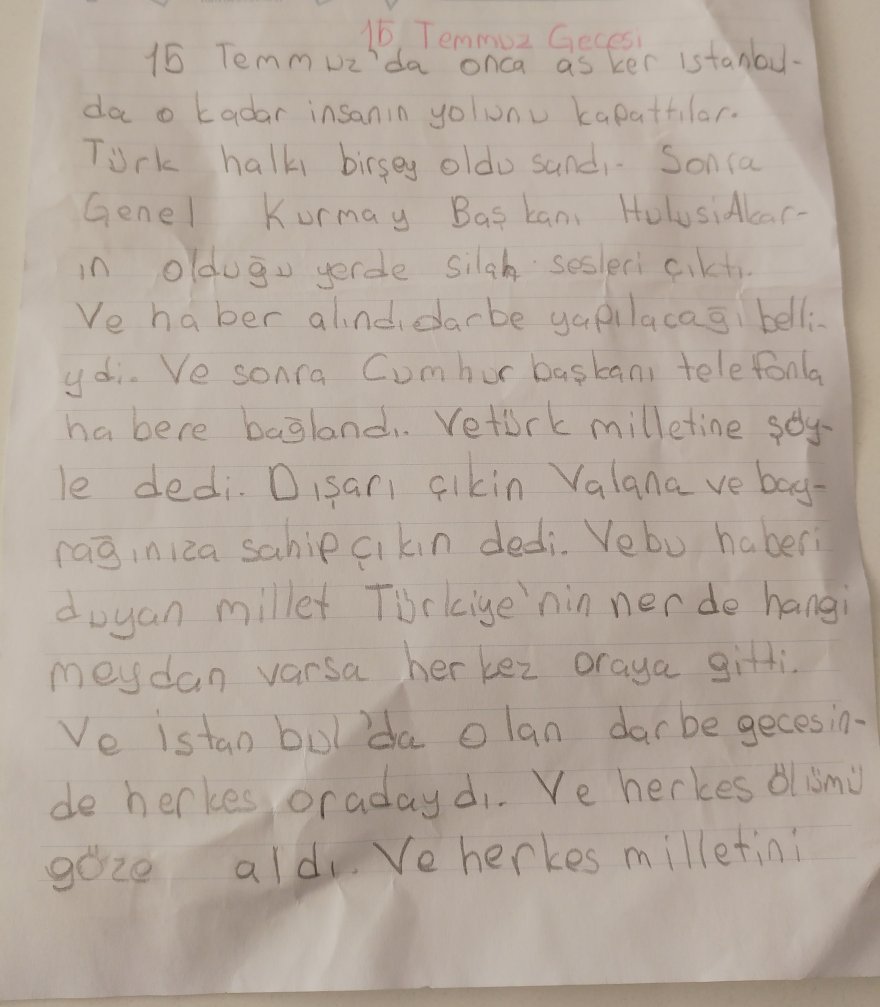 15 Temmuz Gecesi
15 Temmuz'da onca asker istanbul-
da o kadar insanın yolunu kapattılar.
Türk halkı birşey oldu sandı. Sonra
Genel Kurmay Başkanı HulusiAkar-
ın olduğu yerde silah sesleri çıktı.
Ve haber alındı darbe yapılacağı belli-
ydi. Ve sonra Cumhurbaşkanı telefonla
habere bağlandı. Vetürk milletine şöy-
le dedi. Dışarı çıkin Vatana ve bay-
rağınıza sahip çıkın dedi. Vebu haberi
duyan millet Türkiye'nin nerde hangi
meydan varsa herkez oraya gitti.
Ve istanbul'da olan darbe gecesin-
de herkes oradaydı. Ve herkes ölümü
göze aldı. Ve herkes milletini